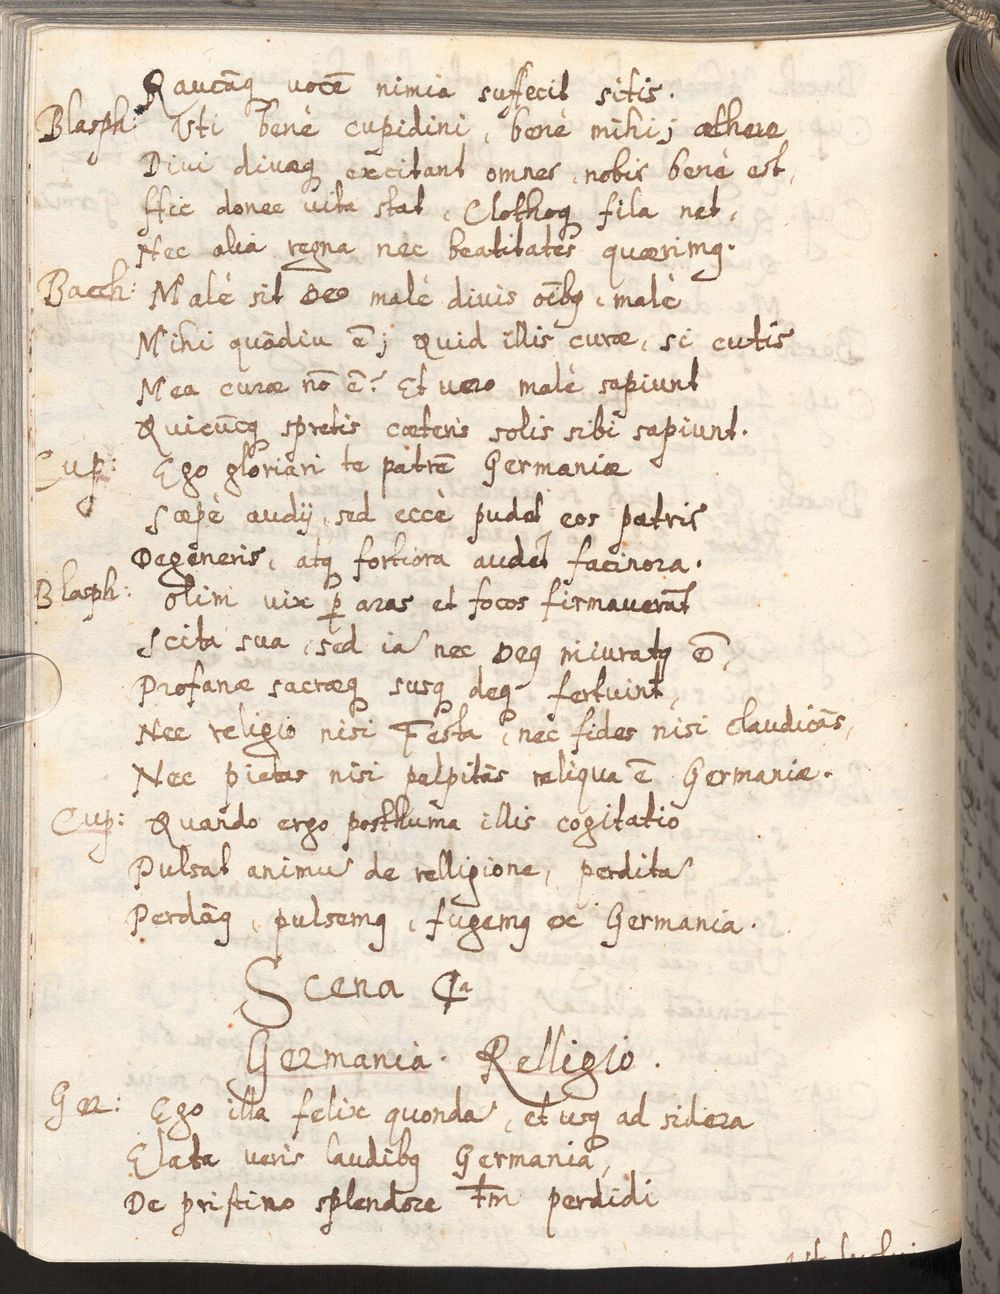 Raucāq vocē nimia suffecit sitis.
Blasph: Isti benè cupidini, benè mihi; æthere
Divi divæq excitant omnes, nobis benè est,
Hic donec vita stat, Clothoq fila net,
Nec alia regna nec beatitates quærimq.
Bacch: Malè sit Deo malè divis oībq, malè
Mihi quādiu ē; Quid illis curæ, si cutis
Mea curæ nō ē? Et vero malè sapiunt
Quicūcq spretis cæteris solis sibi sapiunt.
Cup: Ego gloriari te patrē Germaniæ
Sæpè audij, sed eccè pudet eos patris
Degeneris, atq fortiora audet facinora.
Blasph: Olim vix p aras et focos firmaverāt
Scita sua, sed ia nec Deq miuratq ē,
Profanæ sacræq susq deq fertuint,
Nec religio nisi Festa, nec fides nisi claudicās,
Nec pietas nisi palpitās reliqua ē Germaniæ.
Cup: Quando ergo posthuma illis cogitatio
Pulsat animu de relligione, perdita
Perdāq, pulsemq, fugemq ex Germania.
Scena 4a
Germania. Relligio.
Ger: Ego illa felix quonda, et usq ad sidera
Elata veris laudibq Germania,
De pristino splendore tm perdidi